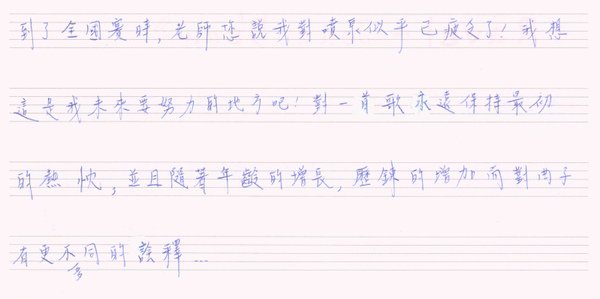 到了全國賽時,老師您說我對噴泉似乎已疲乏了!我想
這是我未來要努力的地方吧!對一首歌永遠保持最初
的熱忱,並且隨著年齡的增長,歷鍊的增加而對曲子
有更多不同的詮釋...